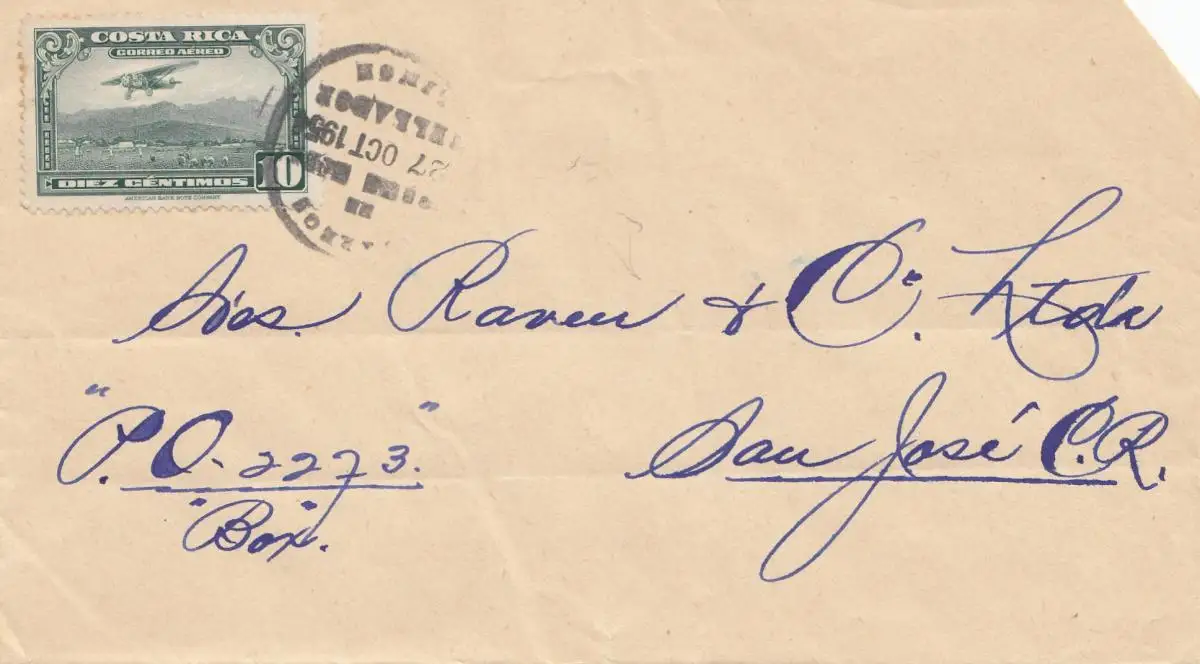 COSTA RICA
CORREO AEREO
10
DIEZ CÉNTIMOS
AMERICAN BANK NOTE COMPANY
27 OCT 195
Raven & Co. Ltda
"P.O. 2273."
"Box".
San José C.R.